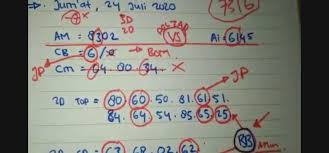 : Jum'at, 24 Juli 2020
7316
3D
2D
AM = 9302 VS Ai = 6145
CB = 6/ → Bom
JP
CM = 04. 90. 34. X
JP
2D TOP = 80. 60. 50. 81. 61. 51.
84. 64. 54. 85. 65. 25
RB
02. 62